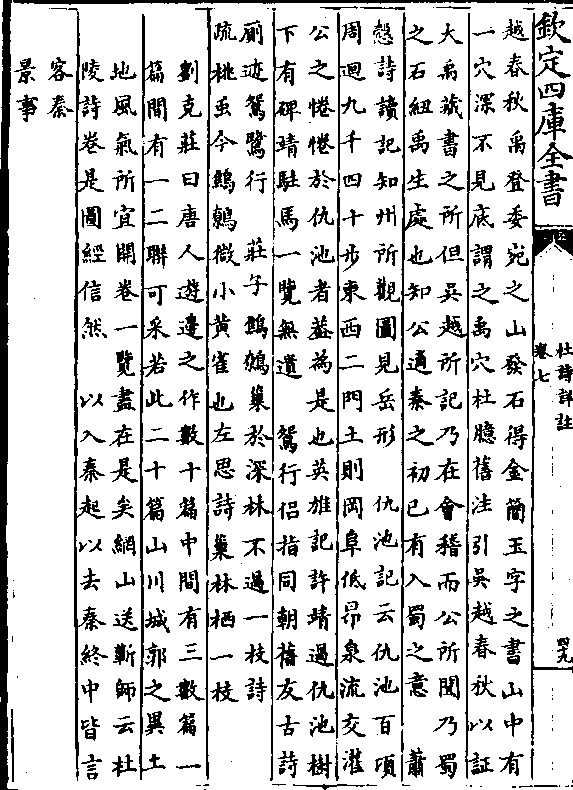 欽定四庫全書
杜詩詳註
卷七
四九
越春秋禹登委宛之山發石得金簡玉字之書山中有
一穴深不見底謂之禹穴杜臆舊注引吳越春秋以証
大禹藏書之所但吳越所記乃在會稽而公所聞乃蜀
之石紐禹生處也知公通秦之初已有入蜀之意 蕭
慤詩讀記知州所觀圖見岳形 仇池記云仇池百頃
周迴九千四十步東西二門土則岡阜低昂泉流交灌
公之惓惓於仇池者葢為是也英雄記許靖過仇池樹
下有碑靖駐馬一覽無遺 鴛行侣指同朝舊友古詩
厠迹鴛鷺行 莊子鷦鷯巢於深林不過一枝詩
疏桃虫今鷦鷯微小黄雀也左思詩巢林栖一枝
劉克莊曰唐人遊邊之作數十篇中間有三數篇一
篇間有一二聯可采若此二十篇山川城郭之異土
地風氣所宜開卷一覽盡在是矣網山送蘄帥云杜
陵詩卷是圖經信然 以入秦起以去秦終中皆言
客秦
景事